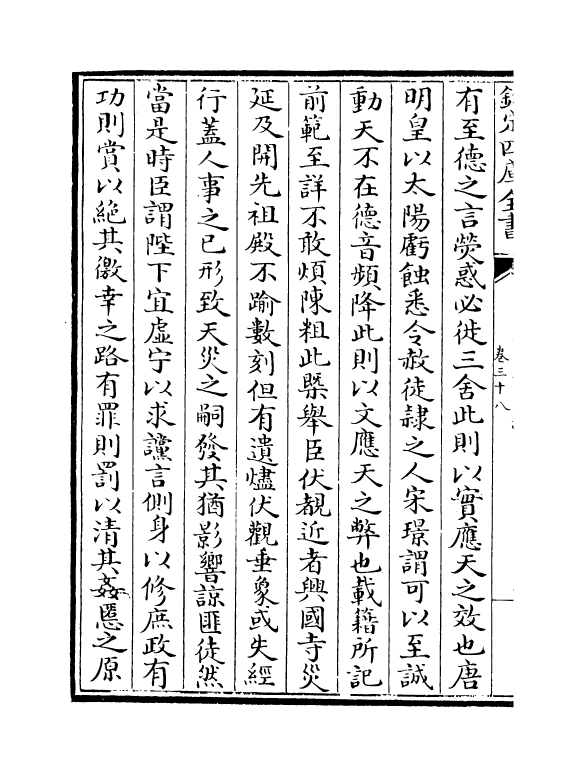 欽定四庫全書
卷三十八
有至德之言熒惑必徙三舍此則以實應天之效也唐
明皇以太陽虧蝕悉令赦徒隷之人宋璟謂可以至誠
動天不在德音頻降此則以文應天之弊也載籍所記
前範至詳不敢煩陳粗此槩舉臣伏覩近者興國寺災
延及開先祖殿不踰數刻但有遺燼伏觀垂象或失經
行蓋人事之已形致天災之嗣發其猶影響諒匪徒然
當是時臣謂陛下宜虛宁以求讜言側身以修庶政有
功則賞以絕其徼幸之路有罪則罰以清其姦慝之原